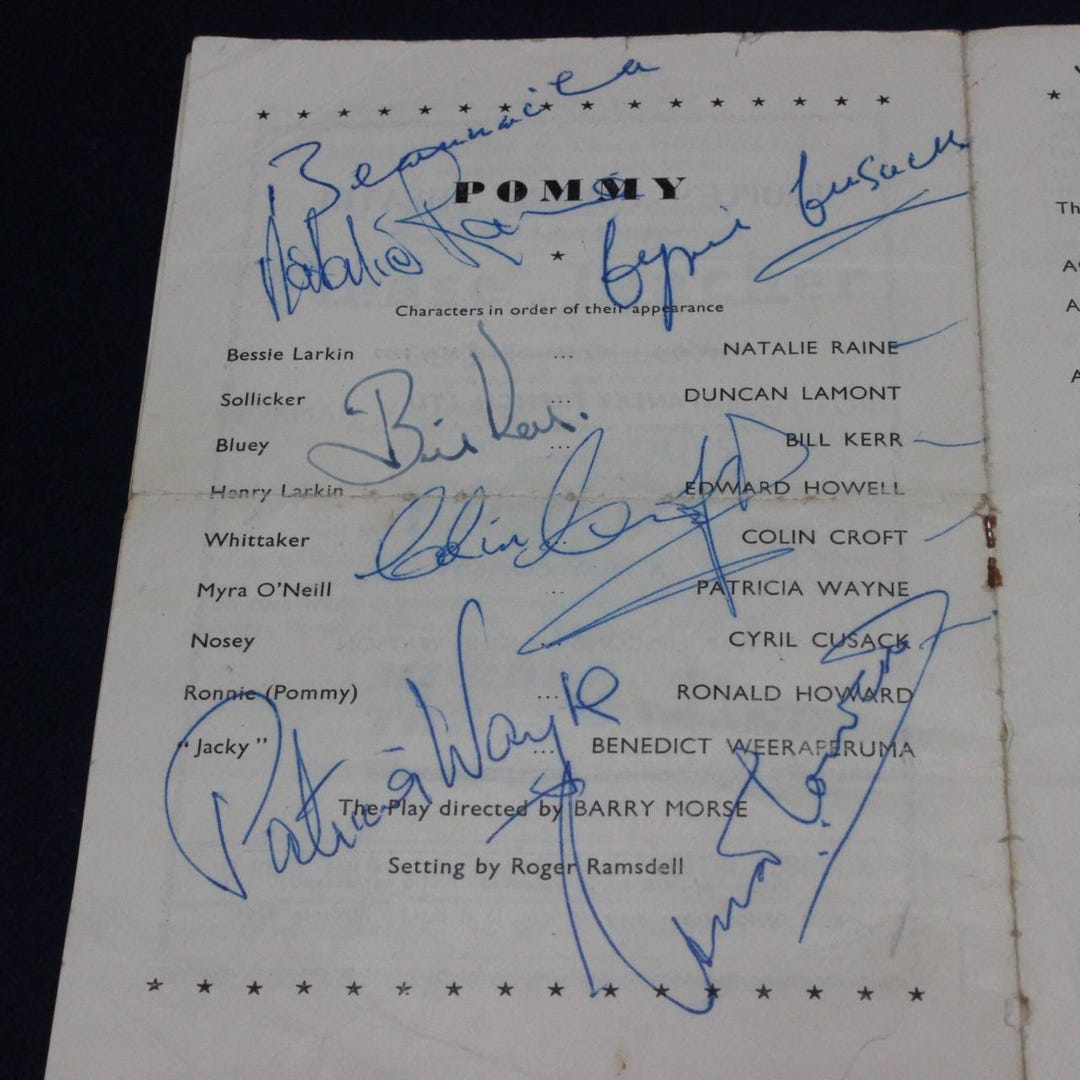 ★ ★ ★ ★ ★ ★ ★ ★ ★ ★ ★ ★ ★ ★ ★ ★ ★
POMMY
Natalie Raine
Cyril Cusack
★
Characters in order of their appearance
Bessie Larkin ... NATALIE RAINE
Sollicker ... DUNCAN LAMONT
Bill Kerr.
Bluey ... BILL KERR
Henry Larkin ... EDWARD HOWELL
Colin Croft
Whittaker ... COLIN CROFT
Myra O'Neill ... PATRICIA WAYNE
Nosey ... CYRIL CUSACK
Ronnie (Pommy) ... RONALD HOWARD
Patricia Wayne
"Jacky" ... BENEDICT WEERAPERUMA
The Play directed by BARRY MORSE
Setting by Roger Ramsdell
★ ★ ★ ★ ★ ★ ★ ★ ★ ★ ★ ★ ★ ★ ★ ★